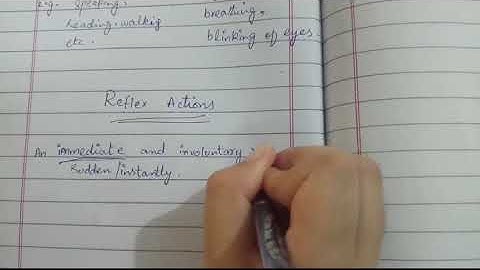 e.g. speaking,
reading, walking
etc.
breathing,
blinking of eyes
Reflex Actions
An immediate and involuntary
sudden/instantly.